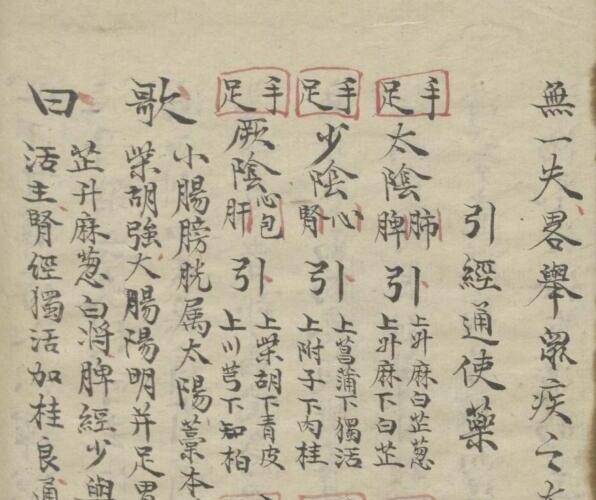 無一失畧舉衆疾之
引經通使藥
手足太陰肺脾引上升麻白芷葱
上升麻下白芷
手足少陰心腎引上菖蒲下獨活
上附子下内桂
手足厥陰心包肝引上柴胡下青皮
上川芎下知柏
歌小腸膀胱属太陽藁本
柴胡強大腸陽明并足胃
曰芷升麻葱白將脾經少與
活主腎經獨活加桂良通